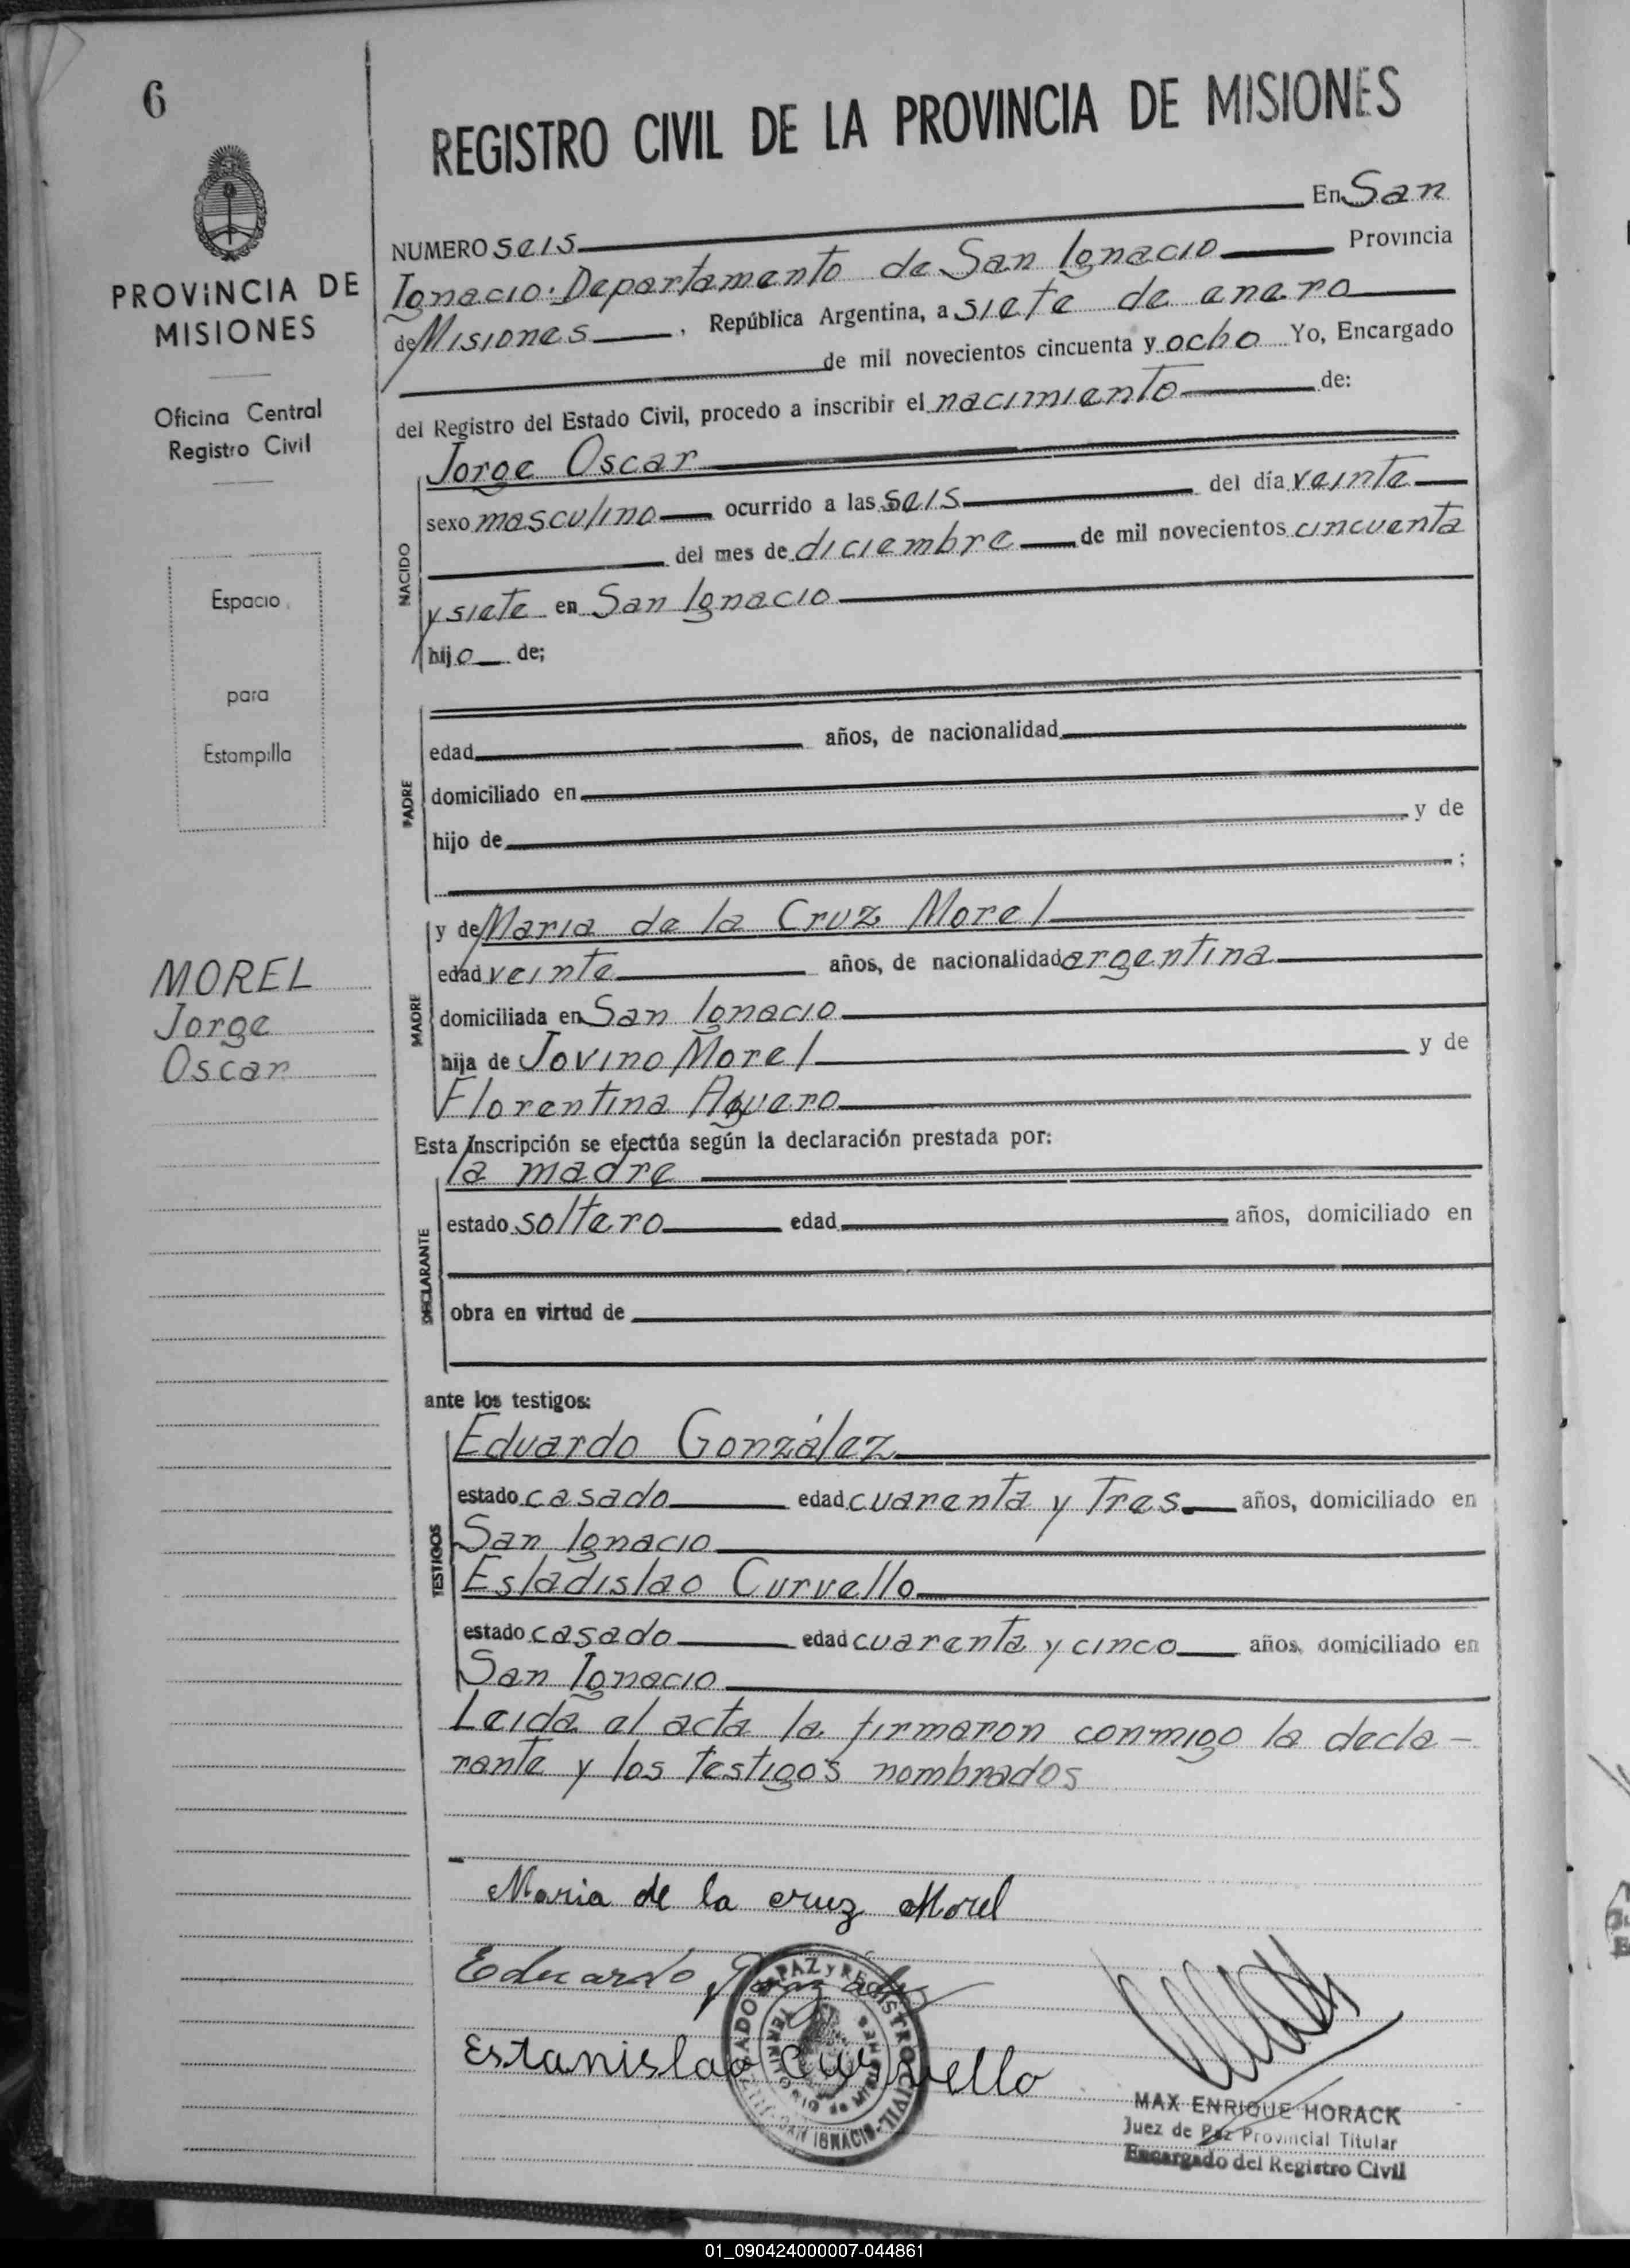 6
PROVINCIA DE
MISIONES
Oficina Central
Registro Civil
Espacio
para
Estampilla
MOREL
Jorge
Oscar
REGISTRO CIVIL DE LA PROVINCIA DE MISIONES
NUMERO seis En San
Ignacio. Departamento de San Ignacio Provincia
de Misiones, República Argentina, a siete de enero
de mil novecientos cincuenta y ocho Yo, Encargado
del Registro del Estado Civil, procedo a inscribir el nacimiento de:
NACIDO
Jorge Oscar
sexo masculino ocurrido a las seis del día veinte
del mes de diciembre de mil novecientos cincuenta
y siete en San Ignacio
hijo de;
PADRE
edad años, de nacionalidad
domiciliado en
hijo de y de
;
MADRE
y de Maria de la Cruz Morel
edad veinte años, de nacionalidad argentina
domiciliada en San Ignacio
hija de Jovino Morel y de
Florentina Aguero
Esta Inscripción se efectúa según la declaración prestada por:
DECLARANTE
la madre
estado soltero edad años, domiciliado en
obra en virtud de
ante los testigos:
TESTIGOS
Eduardo González
estado casado edad cuarenta y tres años, domiciliado en
San Ignacio
Esladislao Curvello
estado casado edad cuarenta y cinco años, domiciliado en
San Ignacio
Leida el acta la firmaron conmigo la decla-
rante y los testigos nombrados
Maria de la cruz Morel
Eduardo González
Estanislao Curvello
PAZ y REGISTRO CIVIL
SAN IGNACIO
MAX ENRIQUE HORACK
Juez de Paz Provincial Titular
Encargado del Registro Civil
01_090424000007-044861